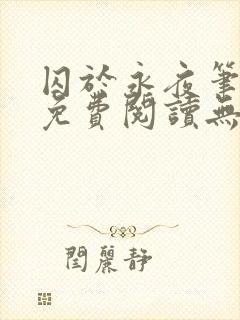 囚於永夜筆
免費閱讀無
閆麗靜